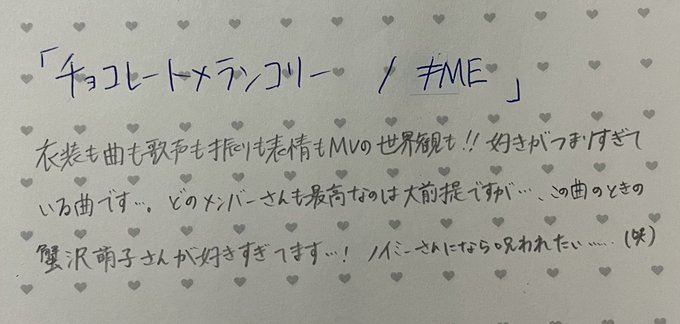 「チョコレートメランコリー / ≠ME 」
衣装も曲も歌声も振りも表情もMVの世界観も!! 好きがつまりすぎて
いる曲です…。どのメンバーさんも最高なのは大前提ですが…、この曲のときの
蟹沢萌子さんが好きすぎてます…! ノイミーさんになら呪われたい……(笑)